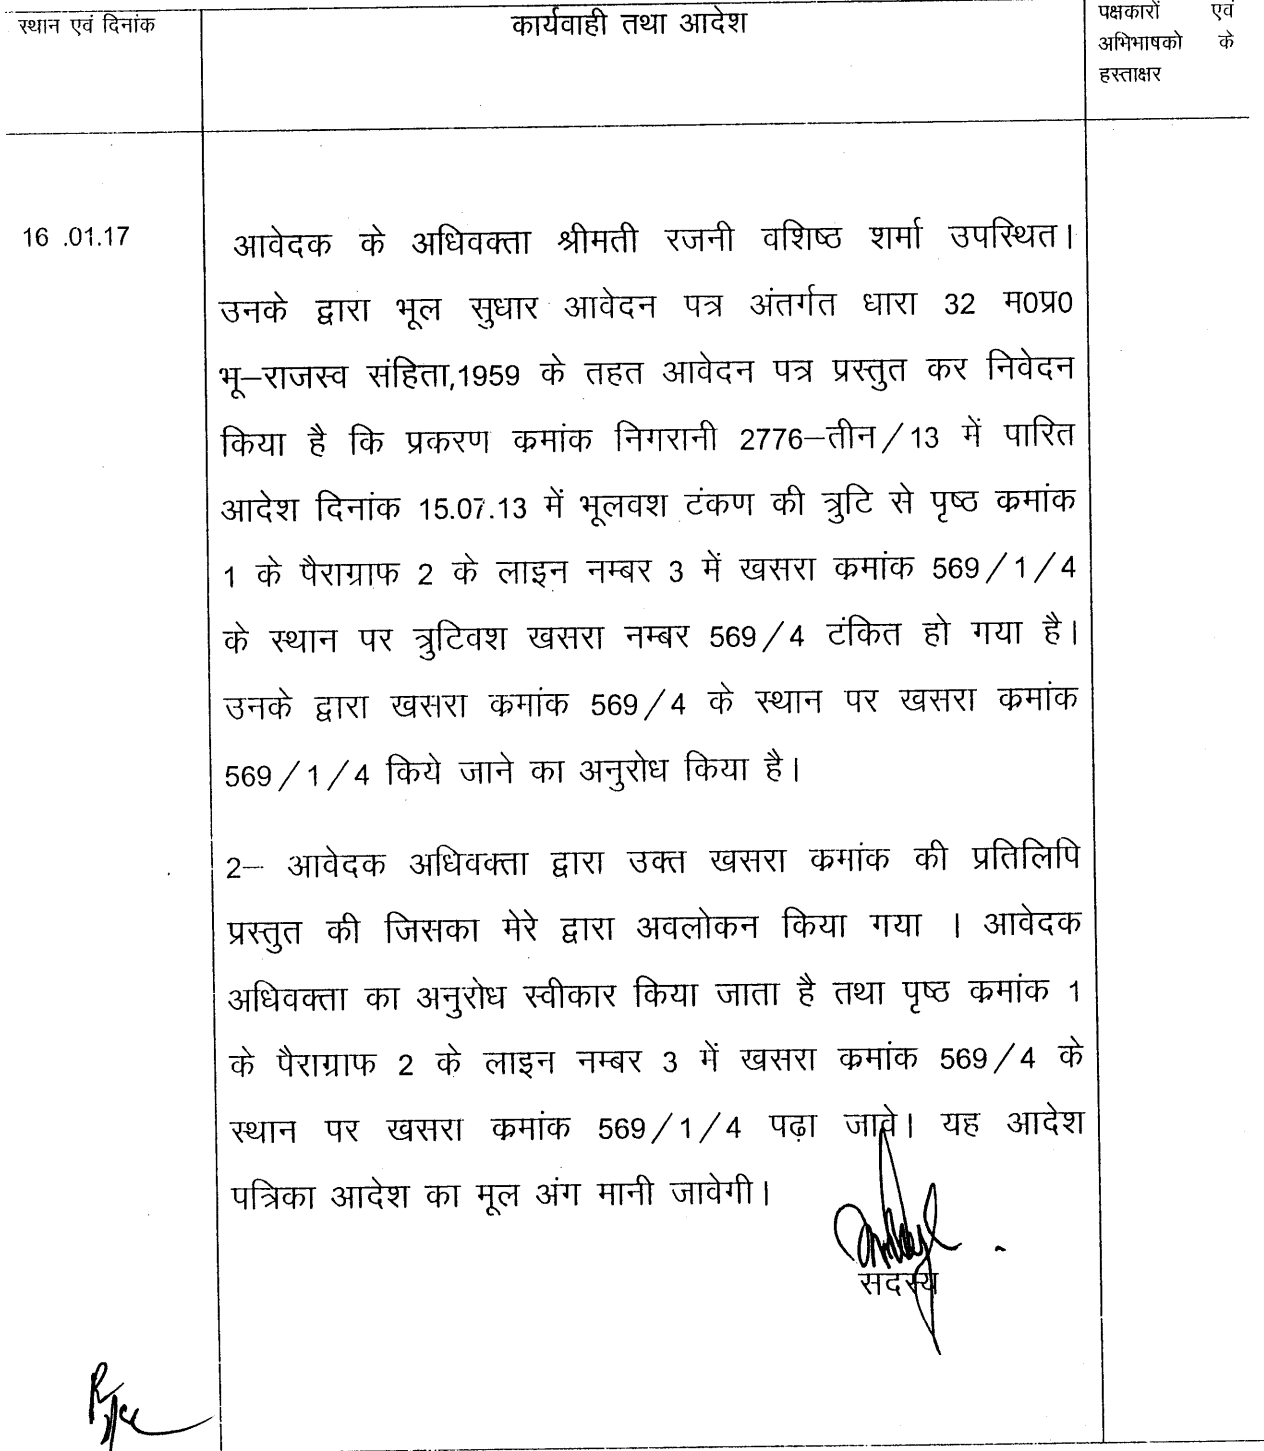 स्थान एवं दिनांक
कार्यवाही तथा आदेश
पक्षकारों एवं
अभिभाषको के
हस्ताक्षर
16 .01.17
आवेदक के अधिवक्ता श्रीमती रजनी वशिष्ठ शर्मा उपस्थित।
उनके द्वारा भूल सुधार आवेदन पत्र अंतर्गत धारा 32 म0प्र0
भू–राजस्व संहिता,1959 के तहत आवेदन पत्र प्रस्तुत कर निवेदन
किया है कि प्रकरण कमांक निगरानी 2776–तीन/13 में पारित
आदेश दिनांक 15.07.13 में भूलवश टंकण की त्रुटि से पृष्ठ कमांक
1 के पैराग्राफ 2 के लाइन नम्बर 3 में खसरा कमांक 569/1/4
के स्थान पर त्रुटिवश खसरा नम्बर 569/4 टंकित हो गया है।
उनके द्वारा खसरा कमांक 569/4 के स्थान पर खसरा कमांक
569/1/4 किये जाने का अनुरोध किया है।
2– आवेदक अधिवक्ता द्वारा उक्त खसरा कमांक की प्रतिलिपि
प्रस्तुत की जिसका मेरे द्वारा अवलोकन किया गया । आवेदक
अधिवक्ता का अनुरोध स्वीकार किया जाता है तथा पृष्ठ कमांक 1
के पैराग्राफ 2 के लाइन नम्बर 3 में खसरा कमांक 569/4 के
स्थान पर खसरा कमांक 569/1/4 पढ़ा जावे। यह आदेश
पत्रिका आदेश का मूल अंग मानी जावेगी।
सदस्य